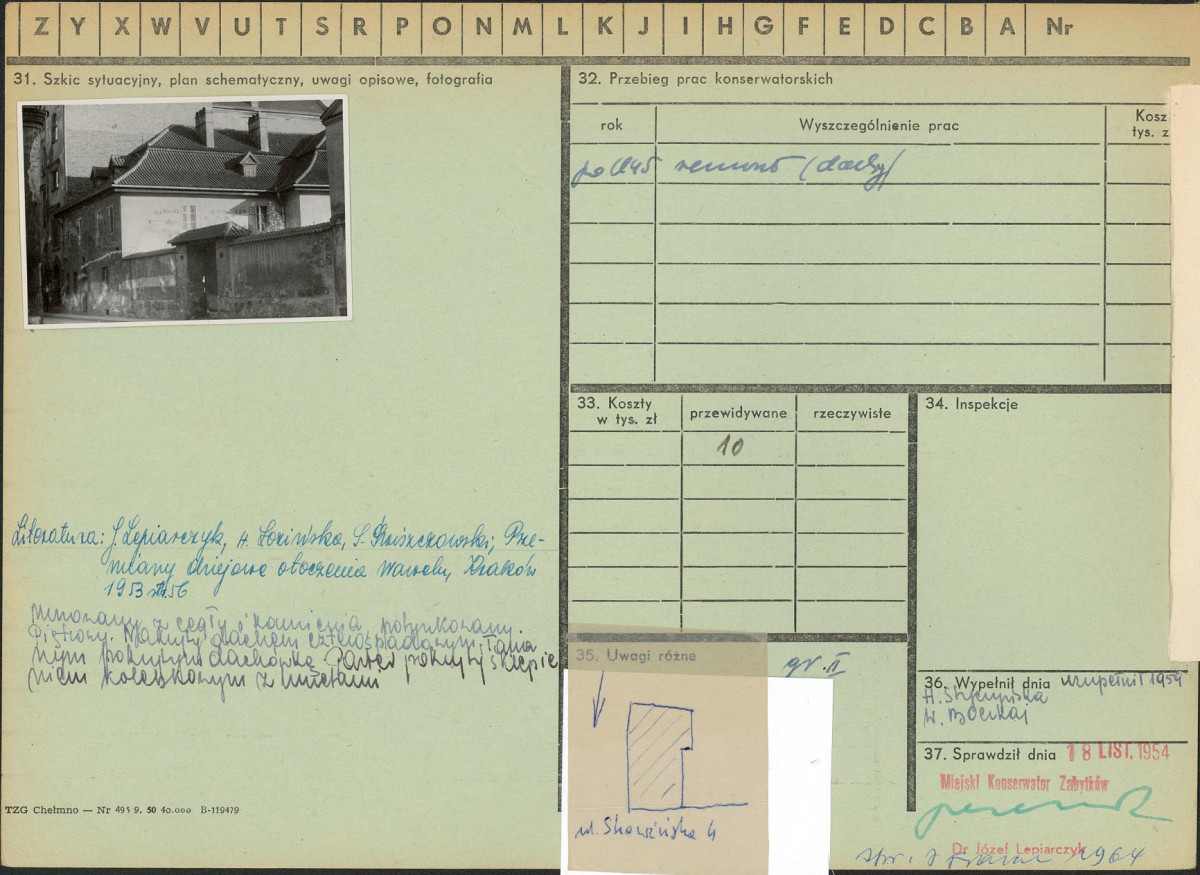 Z Y X W V U T S R P O N M L K J I H G F E D C B A Nr
31. Szkic sytuacyjny, plan schematyczny, uwagi opisowe, fotografia
Literatura: J. Lepiarczyk, H. Łozińska, S. Świszczowski, Prze-
miany dziejowe otoczenia Wawelu, Kraków
1953 str. 56
Murowany z cegły i kamienia potynkowany.
Piętrowy. Nakryty dachem czterospadowym, łama
nym pokrytym dachówką. Parter pokryty sklepie
niem kolebkowym z lunetami
TZG Chełmno — Nr 495 9. 50 40.000 B-119479
32. Przebieg prac konserwatorskich
rok Wyszczególnienie prac Kosz
tys. z
po 1945 remont (dachy)
33. Koszty
w tys. zł
przewidywane rzeczywiste
10
34. Inspekcje
35. Uwagi różne
gr. II
ul. Skawińska 4
36. Wypełnił dnia uzupełnił 1954
37. Sprawdził dnia 18 LIST. 1954
Miejski Konserwator Zabytków
Dr Józef Lepiarczyk
1964